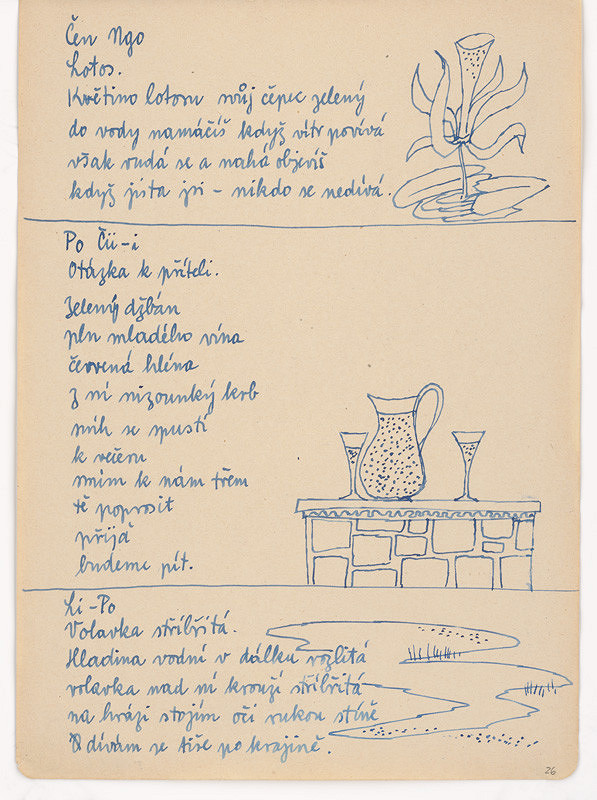 Čen Ngo
Lotos.
Květino lotosu svůj čépec zelený
do vody namáčíš když vítr povívá
však rudá se a nahá objevíš
když jista jsi – nikdo se nedívá.
Po Čü-i
Otázka k příteli.
Zelený džbán
pln mladého vína
červená hlína
z ní nizounký krb
sníh se spustí
k večeru
smím k nám třem
tě poprosit
přijď
budeme pít.
Li-Po
Volavka stříbřitá.
Hladina vodní v dálku rozlitá
volavka nad ní krouží stříbřitá
na hrázi stojím oči rukou stíně
dívám se tiše po krajině.
26